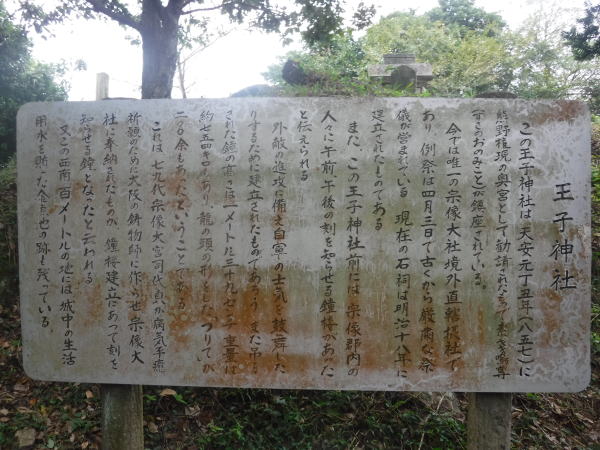 王子神社
この王子神社は天安元丁丑年(八五七)に
熊野権現の奥宮として勧請されたもので素き嗚尊
すさのおのみことが鎮座されている。
今では唯一の宗像大社境外直轄摂社で
あり 例祭は四月三日で古くから厳粛な祭
儀が営まれている 現在の石祠は明治十八年に
建立されたものである
また、この王子神社前には 宗像郡内の
人々に午前、午後の刻を知らせる鐘楼があった
と伝えられる
外敵の進攻に備え自軍の士気を鼓舞した
りするために建立されたものであろう また吊る
された鐘の高さは一メートル三十九センチ 重量は
約七五四キロあり 龍の頭の形とした つりてが
二〇余もあったということである
これは 七九代宗像大宮司氏貞が病気平癒
祈願のために大阪の鋳物師に作らせ 宗像大
社に奉納されたものが 鐘楼建立にあたって刻を
知らせる鐘となったと云われる
又この西南百メートルの地には城中の生活
用水を貯えた跡も残っている